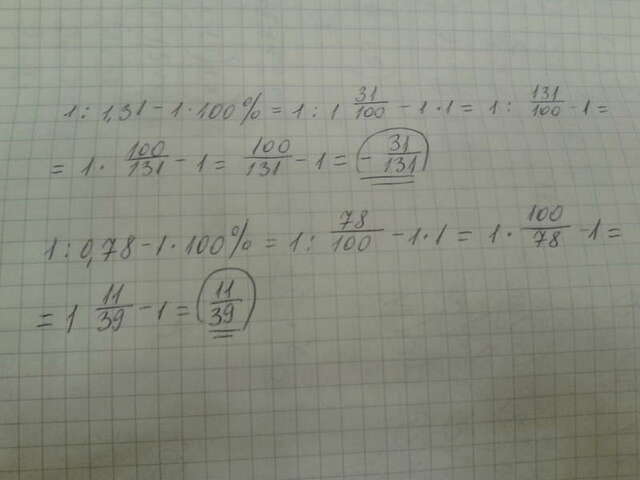 1 : 1,31 - 1 · 100% = 1 : 1 31/100 - 1 · 1 = 1 : 131/100 - 1 =
= 1 · 100/131 - 1 = 100/131 - 1 = - 31/131
1 : 0,78 - 1 · 100% = 1 : 78/100 - 1 · 1 = 1 · 100/78 - 1 =
= 1 11/39 - 1 = 11/39